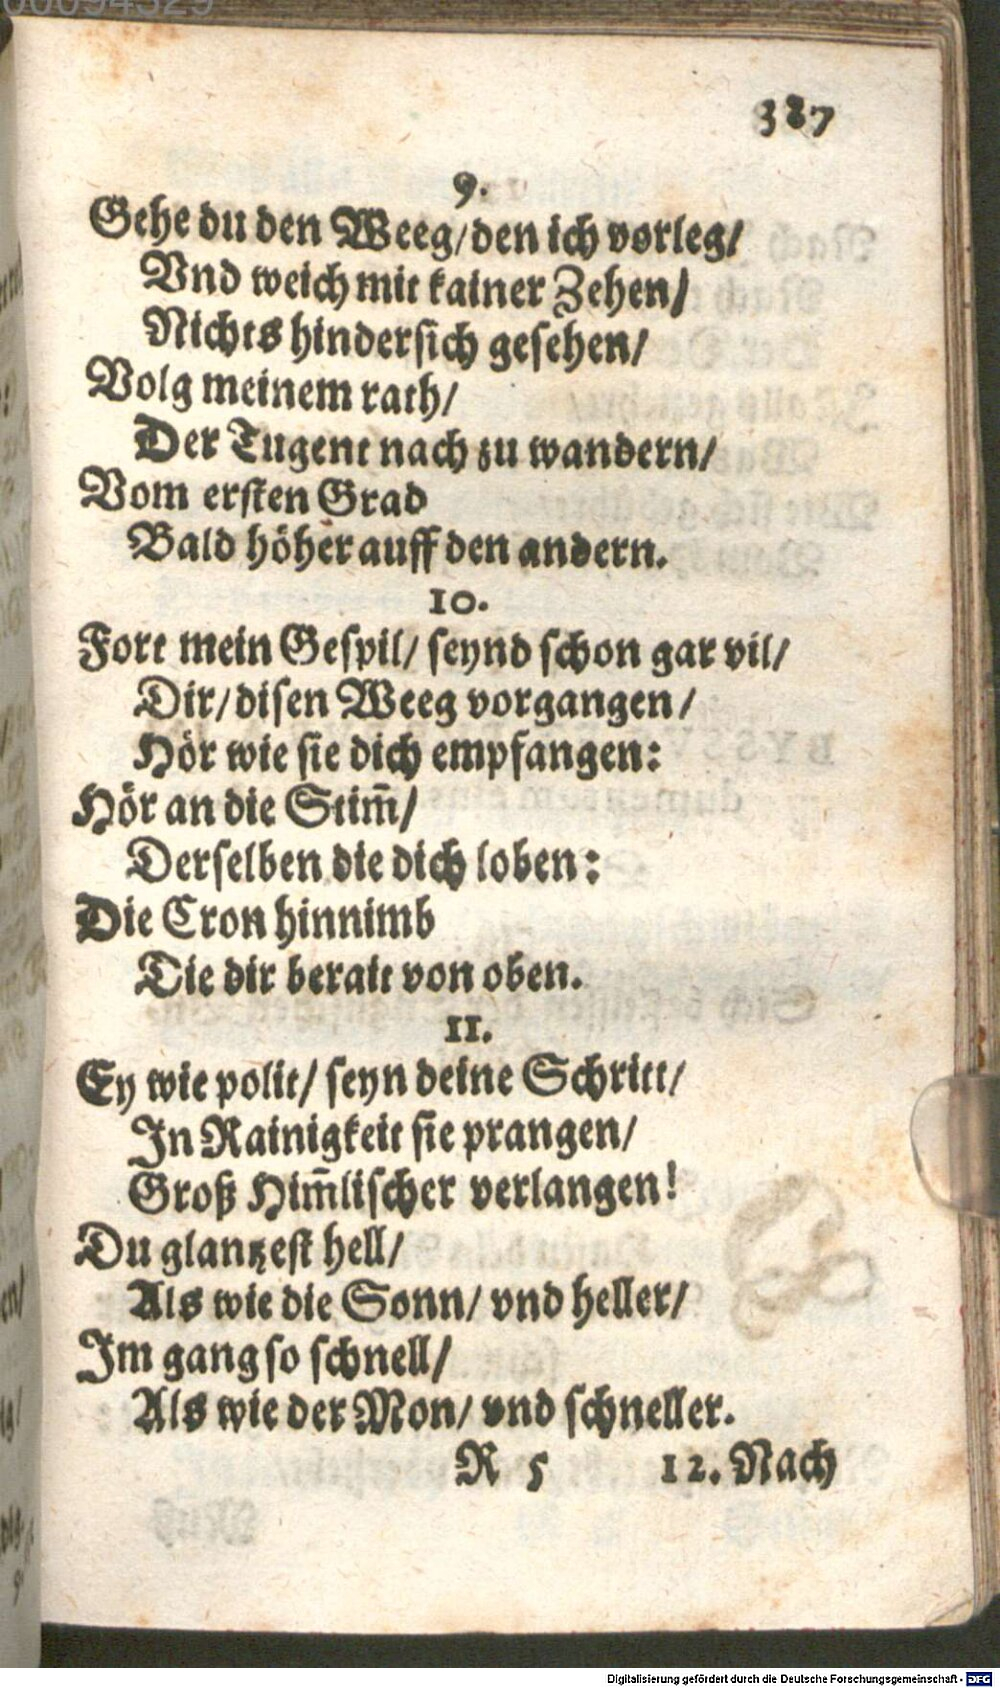 00094329
387
9.
Gehe du den Weeg/ den ich vorleg/
Vnd weich mit kainer Zehen/
Nichts hindersich gesehen/
Volg meinem rath/
Der Tugent nach zu wandern/
Vom ersten Grad
Bald höher auff den andern.
10.
Fort mein Gespil/ seynd schon gar vil/
Dir/ disen Weeg vorgangen/
Hör wie sie dich empfangen:
Hör an die Stim̃/
Derselben die dich loben:
Die Cron hinnimb
Die dir berait von oben.
11.
Ey wie polit/ seyn deine Schritt/
In Rainigkeit sie prangen/
Groß Him̃lischer verlangen!
Du glantzest hell/
Als wie die Sonn/ vnd heller/
Im gang so schnell/
Als wie der Mon/ vnd schneller.
R 5 12. Nach
Digitalisierung gefördert durch die Deutsche Forschungsgemeinschaft - DFG